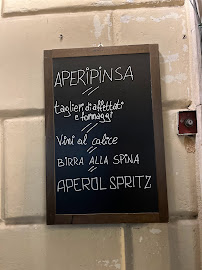 APERiPiNSA
//
taglieri di affettati
e formaggi
//
Vini al calice
//
BIRRA ALLA SPINA
//
APEROL SPRITZ